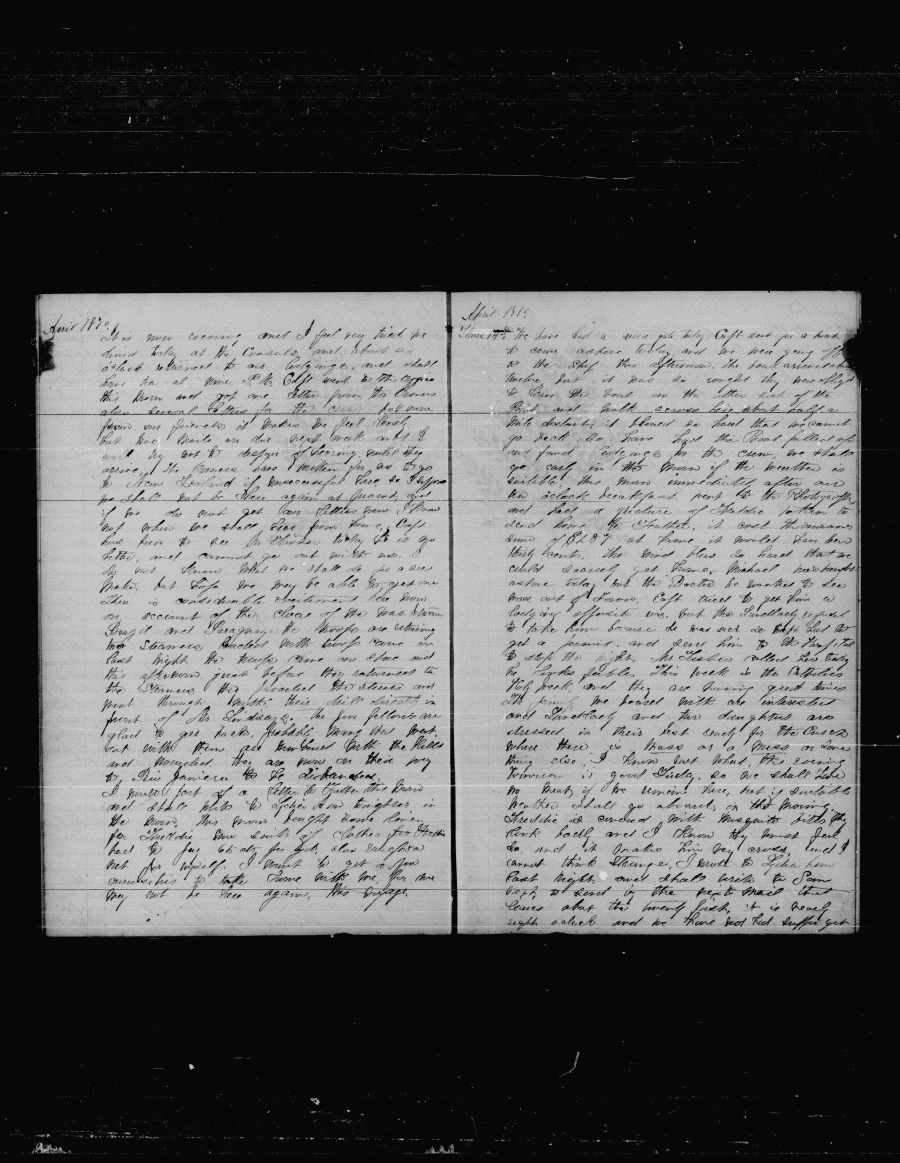 April 1870
It is now evening and I feel very tired we
dined today at the Consuls, and about six
oclock returned to our lodgings, and shall
have tea at nine P.M. Capt went to the office
this morn and got one letter from the Owners
also several letters for the crew but none
from our friends it makes me feel lonely
but two mails are due next week and I
will try not to despair of hearing until they
arrive, the Owners have written for us to go
to New Zealand if unsuccessful here, so I suppose
we shall not be here again at present, and
if we do not get our letters now I know
not when we shall hear from home, Capt
has been to see Mr today he is no
better, and cannot go out with us. I
do not know what we shall do for a
mate, but hope we may be able to get one
There is considerable excitement here now
on account of the close of the war between
Brazil and Paraguay, the troops are returning
two Steamers loaded with troops came in
last night the troops came on shore and
this afternoon just before they returned to
the Steamers they paraded the streets and
went through with their drill directly in
front of Mr Lindsays. the poor fellows are
glad to get back, probably many that went
out with them are numbered with the killed
and wounded they are now on their way
to Rio Janiero to be disbanded.
I wrote part of a letter to Father this morn
and shall write to Lydia Ann tonight or in
the morn, this morn bought some linen
for Freddie two suits of clothes for
had to pay for
net for myself, I want to get a few
curiosities to take home with me for we
may not be here again this voyage
April 1870
Thurs 14th We have had a severe gale today, Capt sent for a boat
to come ashore today and we were going off
to the ship this afternoon. The boat arrived about
twelve, but it was so rough they were obliged
to leave the boat on the other side of the
Point and walk across here about half a
mile distant, it blowed so hard that we cannot
go back so have had the Boat pulled up
and found lodgings for the crew, we shall
go early in the morn if the weather is
suitable, this morn immediately after our
ten oclock breakfast went to the Photographer
and had a picture of Freddie taken to
send home to Father, it cost the enormous
sum of at home it would have been
thirty cents, The wind blew so hard that we
could scarcely get home, Michael was brought
ashore today but the Doctor he wanted to see
was out of town, Capt tried to get him a
lodging opposite us, but the Landlady refused
to take him because he was sick so Capt had to
get a permit and send him to the Hospital
to stop the night, Mr Fisher called here today
he looks feeble, This week is the Catholics
Holy week, and they are having great times
The family we board with are interested
and Landlady and two daughters are
dressed in their best ready for the
where there is Mass or a Miss or some
thing else, I know not what, this evening
Tomorrow is good Friday, so we shall have
no meat, if we remain here, but if suitable
weather shall go aboard, in the morning.
Freddie is covered with Musquito bites they
look badly and I know they must feel
so and it makes him very cross, and I
cannot think strange, I wrote to Lydia Ann
last night and shall write to Sam
to send by the next mail that
leaves about the twenty first, it is nearly
eight oclock and we have not had supper yet